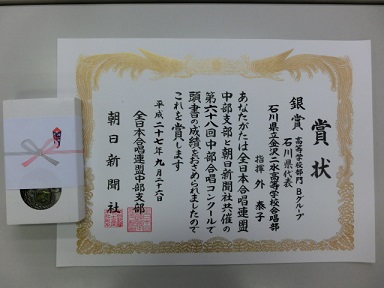 賞状
銀賞 高等学校部門 Bグループ
石川県代表
石川県立金沢二水高等学校合唱部
指揮 外 泰子
あなたがたは全日本合唱連盟
中部支部と朝日新聞社共催の
第六十八回中部合唱コンクールで
頭書の成績をおさめられましたので
これを賞します
平成二十七年九月二十六日
全日本合唱連盟中部支部
朝日新聞社